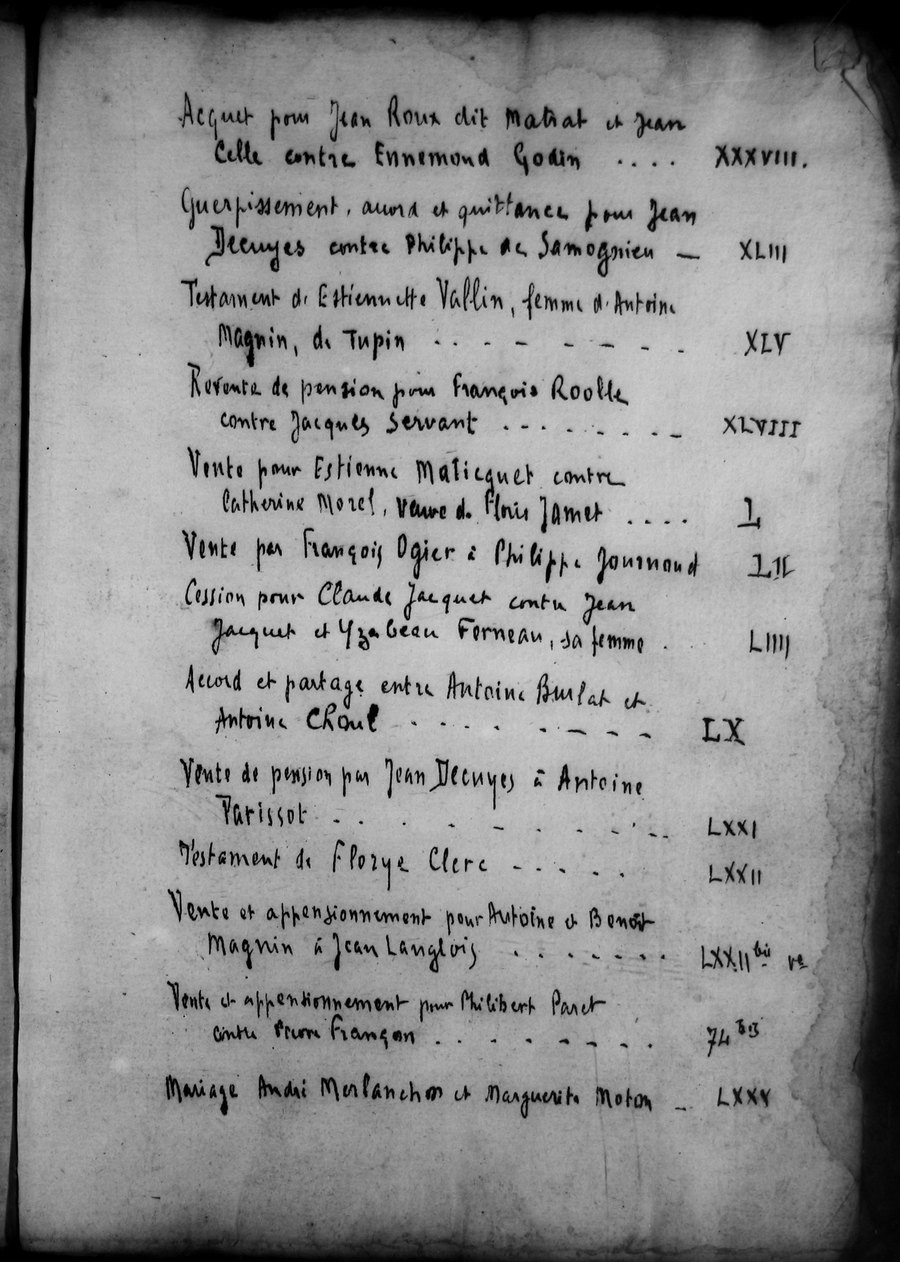 Acquet pour Jean Roux dit Matrat et Jean
Celle contre Ennemond Godin .... XXXVIII.
Guerpissement, accord et quittance pour Jean
Decuyes contre Philippe de Samognieu — XLIII
Testament de Estiennette Vallin, femme d'Antoine
Magnin, de Tupin . . - - - - - . XLV
Revente de pension pour François Roolle
contre Jacques Servant . . . . . . . _ XLVIII
Vente pour Estienne Maticquet contre
Catherine Morel, veuve de Floris Jamet .... L
Vente par François Ogier à Philippe Journoud LII
Cession pour Claude Jacquet contre Jean
Jacquet et Yzabeau Ferneau, sa femme . LIIII
Accord et partage entre Antoine Burlat et
Antoine Choul . . . . . - - - LX
Vente de pension par Jean Decuyes à Antoine
Parissot - . . . - . . . . . LXXI
Testament de Florye Clerc - . . . . LXXII
Vente et appensionnement pour Antoine et Benoît
Magnin à Jean Langlois . . . . . . . LXXII bis v°
Vente et appensionnement pour Philibert Paret
contre Pierre Françon . . . - - - . . 74 bis
Mariage André Merlanchon et Marguerite Moton _ LXXV